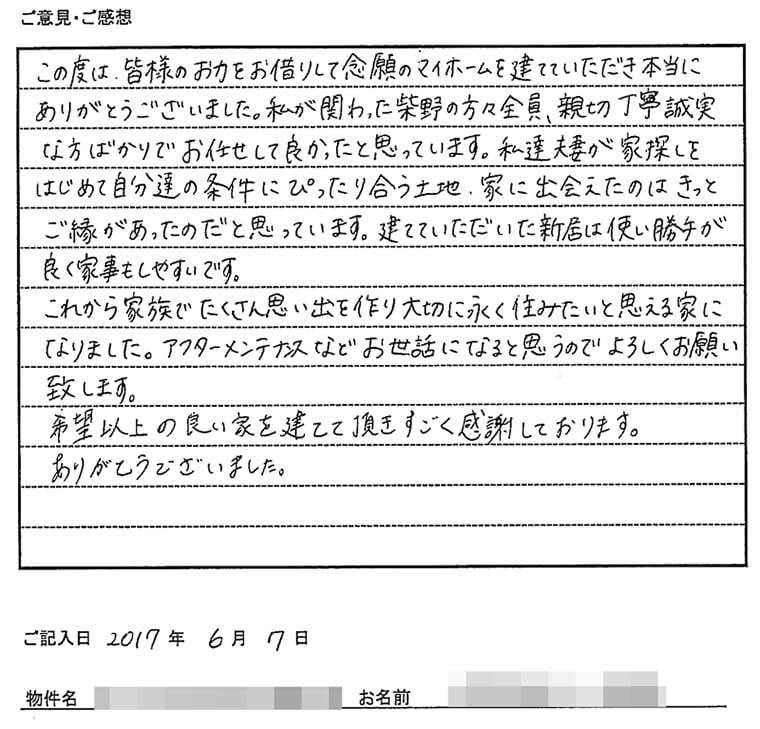 ご意見・ご感想
この度は、皆様のお力をお借りして念願のマイホームを建てていただき本当に
ありがとうございました。私が関わった柴野の方々全員、親切丁寧誠実
な方ばかりでお任せして良かったと思っています。私達夫妻が家探しを
はじめて自分達の条件にぴったり合う土地、家に出会えたのはきっと
ご縁があったのだと思っています。建てていただいた新居は使い勝手が
良く家事もしやすいです。
これから家族でたくさん思い出を作り大切に永く住みたいと思える家に
なりました。アフターメンテナスなどお世話になると思うのでよろしくお願い
致します。
希望以上の良い家を建てて頂きすごく感謝しております。
ありがとうございました。
ご記入日 2017年 6月 7日
物件名 お名前